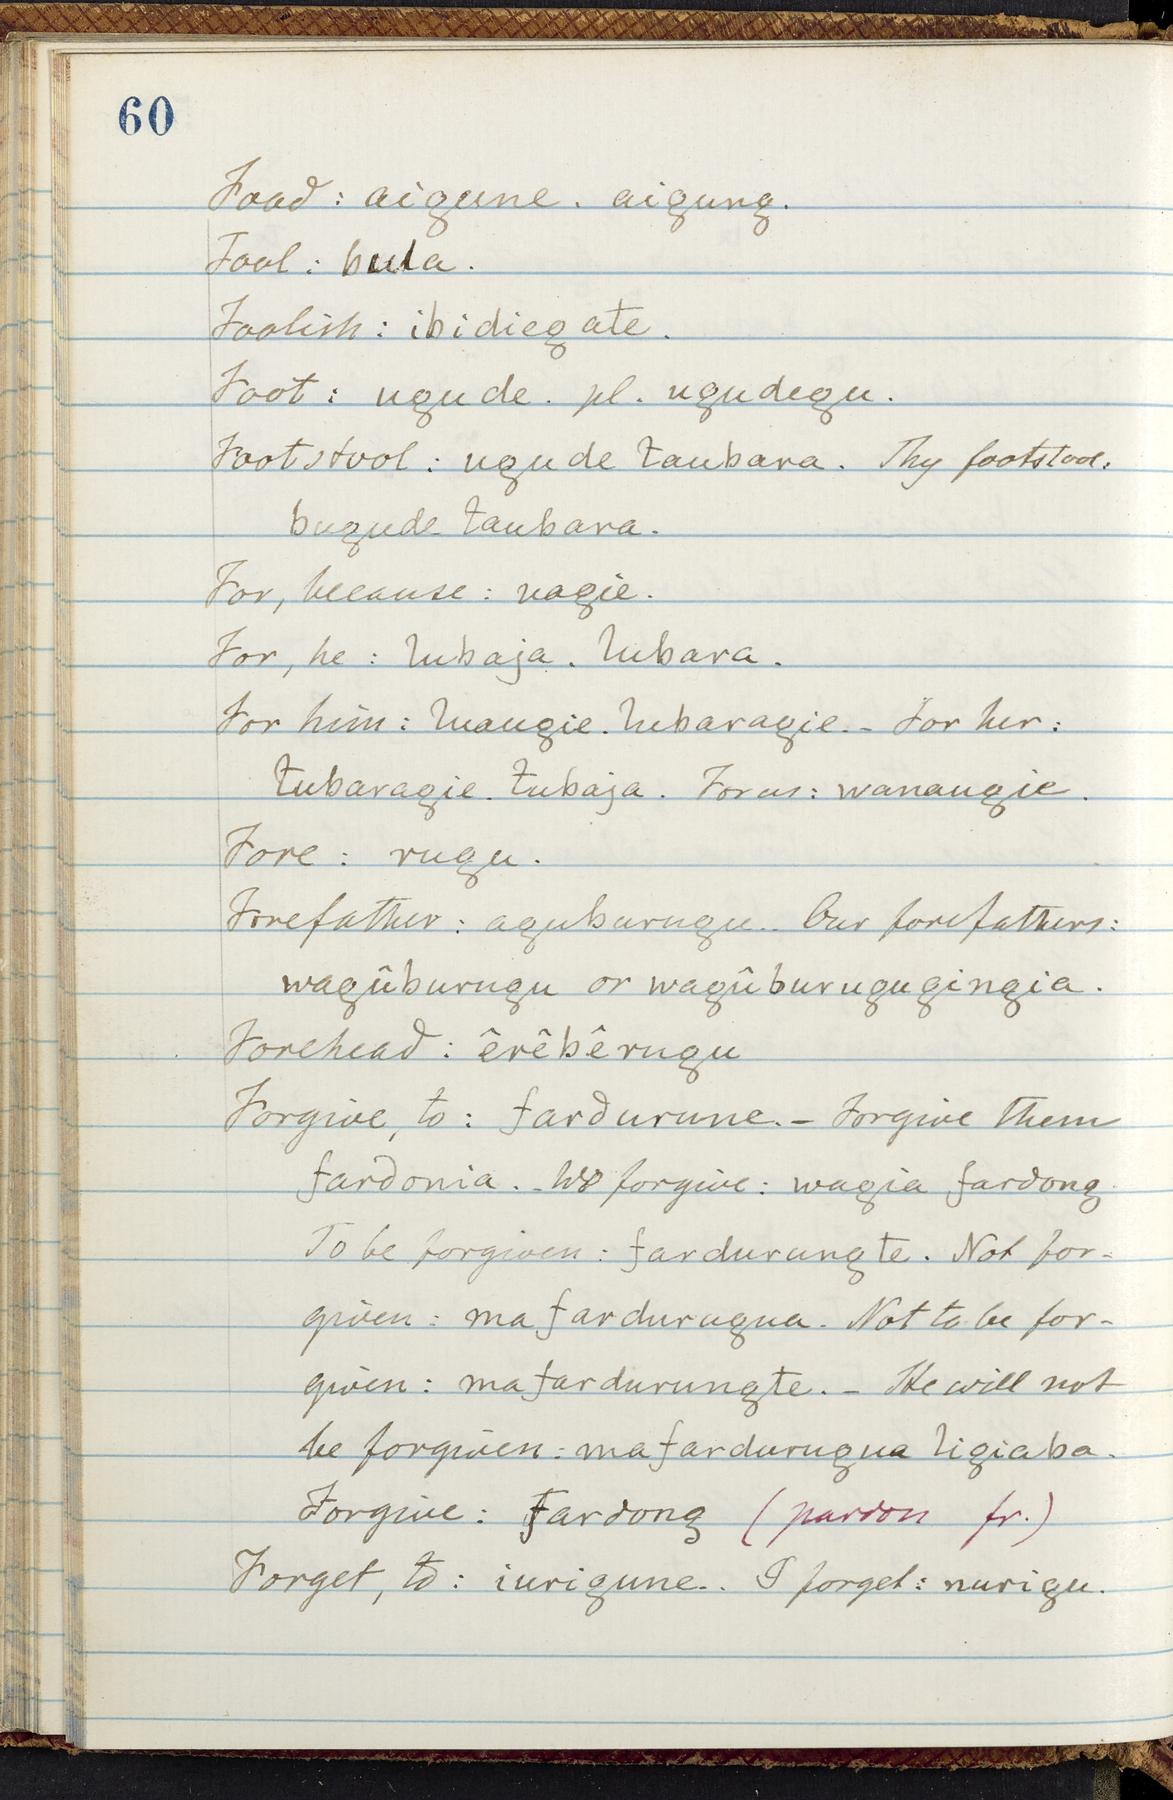 60
Food : aigune . aigung.
Fool : bula .
Foolish : ibidiegate .
Foot : ugude . pl . ugudegu .
Footstool : ugude taubara . Thy footstool:
bugude taubara .
For, because : uagie .
For, he : lubaja . lubara .
For him : luaugie . lubaragie. - For her :
tubaragie . tubaja . For us : wanaugie .
Fore : rugu .
Forefather : aguburugu .. Our forefathers :
wagûburugu or wagûburugugingia .
Forehead : êrêbêrugu
Forgive, to : fardurune. - Forgive them
fardonia . - We forgive : wagia fardong
To be forgiven : fardurungte . Not for-
given : mafardurugua . Not to be for-
given : mafardurungte . - He will not
be forgiven : mafardurugua ligiaba .
Forgive : Fardong ( pardon fr. )
Forget, to : iurigune .. I forget : nurigu .